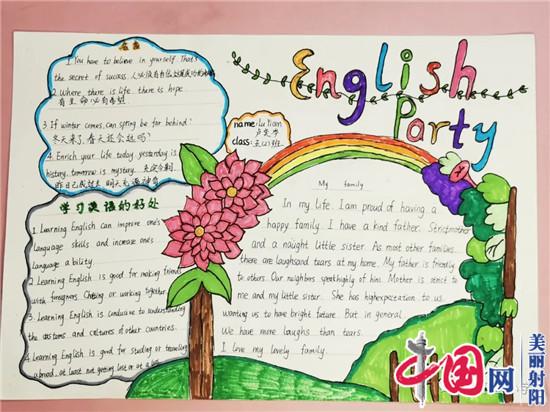 名言
1. You have to believe in yourself. That's
the secret of success.
2. Where there is life, there is hope.
有生命必有希望
3 If winter comes, can spring be far behind?
冬天来了,春天还会远吗?
4. Enrich your life today, yesterday is
history, tomorrow is mystery.
English
Party
name: Lu Tian
class:
学习英语的好处
1. Learning English can improve one's
language skills and increase one's
language ability.
2 Learning English is good for making friends
with foreigners. Chating or working together.
3. Learning English is conducive to understanding
the customs and cultures of other countries.
4. Learning English is good for studing or traveling
abroad, at least not getting lost or
My family
In my life. I am proud of having a
happy family. I have a kind father. Strict mother
and a naught little sister. As most other families
there are laughs and tears at my home. My father is friendly
to others. Our neighbers speak highly of him. Mother is strict to
me and my little sister. She has high expectation to us,
wanting us to have bright future. But in general.
We have more laughs than tears.
I love my lovely family.
中国网
美丽射阳